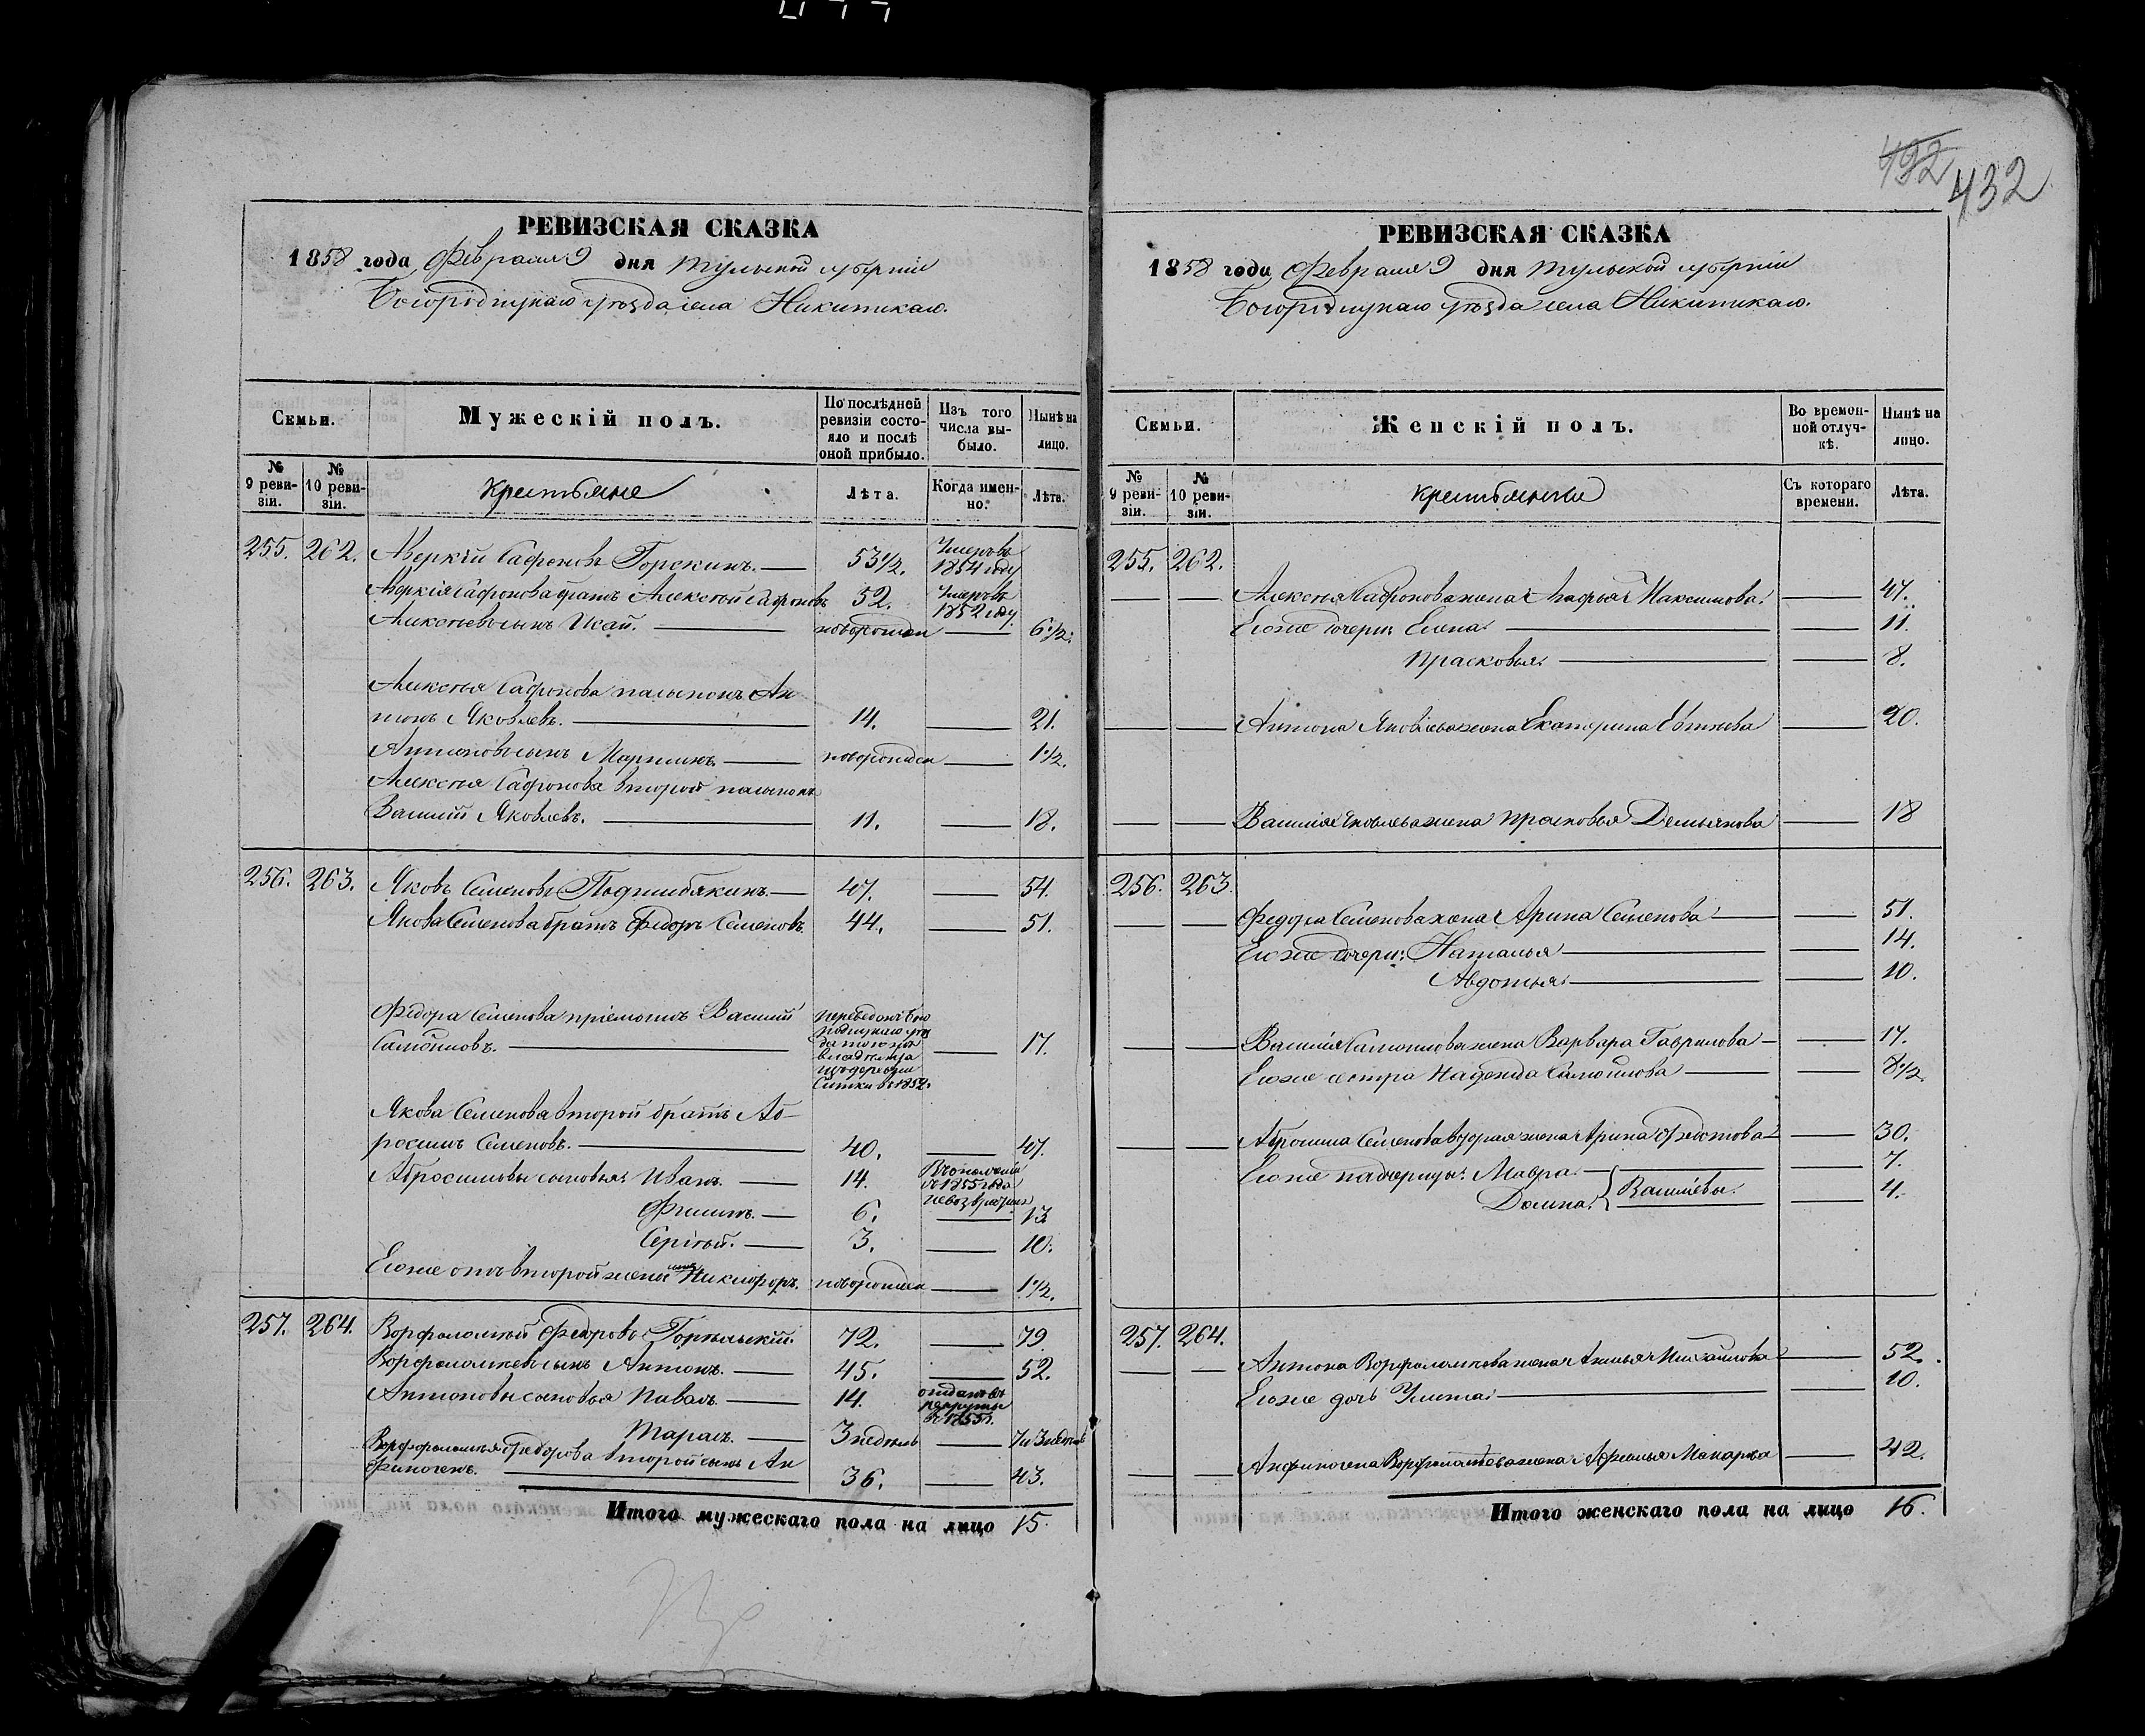 432
432
РЕВИЗСКАЯ СКАЗКА
1858 года Февраля 9 дня Тульской губерніи
Богородицкаго уѣзда села Никитскаго.
Семьи.
Мужескій полъ.
По послѣдней ревизіи состояло и послѣ оной прибыло.
Изъ того числа выбыло.
Нынѣ на лицо.
№ 9 ревизіи.
№ 10 ревизіи.
Крестьяне
Лѣта.
Когда именно.
Лѣта.
255. 262. Аверкій Сафоновъ Горскинъ. 53½. Умеръ въ 1854 году
Аверкія Сафонова братъ Алексѣй Сафоновъ 52. Умеръ въ 1852 году.
Алексѣевъ сынъ Исай. новорожден 6½.
Алексѣя Сафонова пасынокъ Ан-
тонъ Яковлевъ. 14. 21.
Антоновъ сынъ Мартинъ. новорожден 1½.
Алексѣя Сафонова второй пасынокъ
Василій Яковлевъ. 11. 18.
256. 263. Яковъ Семеновъ Подшибякинъ. 47. 54.
Якова Семенова братъ Федоръ Семеновъ. 44. 51.
Федора Семенова пріемышъ Василій
Самойловъ. 17.
Якова Семенова второй братъ Аб-
росимъ Семеновъ. 40. 47.
Абросимовы сыновья: Иванъ. 14. 1855 года
Филипъ. 6. 13
Сергѣй. 3. 10.
Его же отъ второй жены сынъ Никифоръ. новорожден 1½.
257. 264. Ворфоломей Федоровъ 72. 79.
Ворфоломеевъ сынъ Антонъ. 45. 52.
Антоновы сыновья Павелъ. 14. отданъ въ рекруты въ 1855г.
Тарасъ. 3 недѣль 7 и 3 недѣль
Ворфоломея Федорова второй сынъ Ан
финогенъ. 36. 43.
Итого мужескаго пола на лицо 15.
РЕВИЗСКАЯ СКАЗКА
1858 года Февраля 9 дня Тульской губерніи
Богородицкаго уѣзда села Никитскаго.
Семьи.
Женскій полъ.
Во временной отлучкѣ.
Нынѣ на лицо.
№ 9 ревизіи.
№ 10 ревизіи.
Крестьянки
Съ котораго времени.
Лѣта.
255. 262.
Алексѣя Сафонова жена Максимова. 47.
Его же дочери: Елена. 11.
Прасковья. 8.
Антона Яковлева жена Екатерина 20.
Василія Яковлева жена Прасковья Демьянова 18
256. 263.
Федора Семенова жена Арина Семенова 51.
Его же дочери: Наталья 14.
Авдотья. 10.
Василія Самойлова жена Варвара Гаврилова 17.
Его же сестра Надежда Самойлова 8½.
Абросима Семенова вторая жена Арина Федотова 30.
Его же падчерицы: Мавра. 7.
Домна. Васильевы. 4.
257. 264.
Антона Ворфоломеева жена Михайлова 52.
Его же дочь Улита. 10.
Анфиногена Ворфоломеева жена Афимья Макарова 42.
Итого женскаго пола на лицо 16.